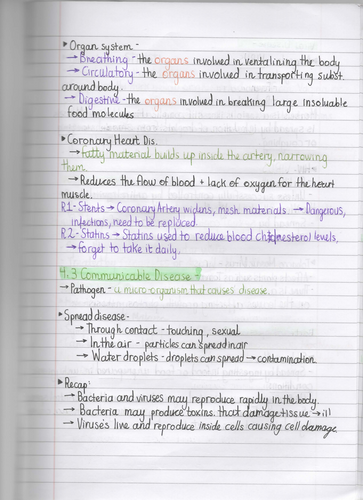 ▸ Organ system -
→ Breathing - the organs involved in ventalining the body
→ Circulatory - the organs involved in transporting subst.
around body.
→ Digestive - the organs involved in breaking large insoluable
food molecules
▸ Coronary Heart Dis.
→ fatty material builds up inside the artery, narrowing
them.
→ Reduces the flow of blood + lack of oxygen for the heart
muscle.
R1 - Stents → Coronary Artery widens, mesh materials. → Dangerous,
infections, need to be replaced.
R2 - Statins → Statins used to reduce blood cholesterol levels,
→ forget to take it daily.
4.3 Communicable Disease -
→ Pathogen - a micro-organism that causes disease.
▸ Spread disease -
→ Through contact - touching, sexual
→ In the air - particles can spread in air
→ Water droplets - droplets can spread → contamination.
▸ Recap:
→ Bacteria and viruses may reproduce rapidly in the body.
→ Bacteria may produce toxins that damage tissue → ill
→ Viruses live and reproduce inside cells causing cell damage.